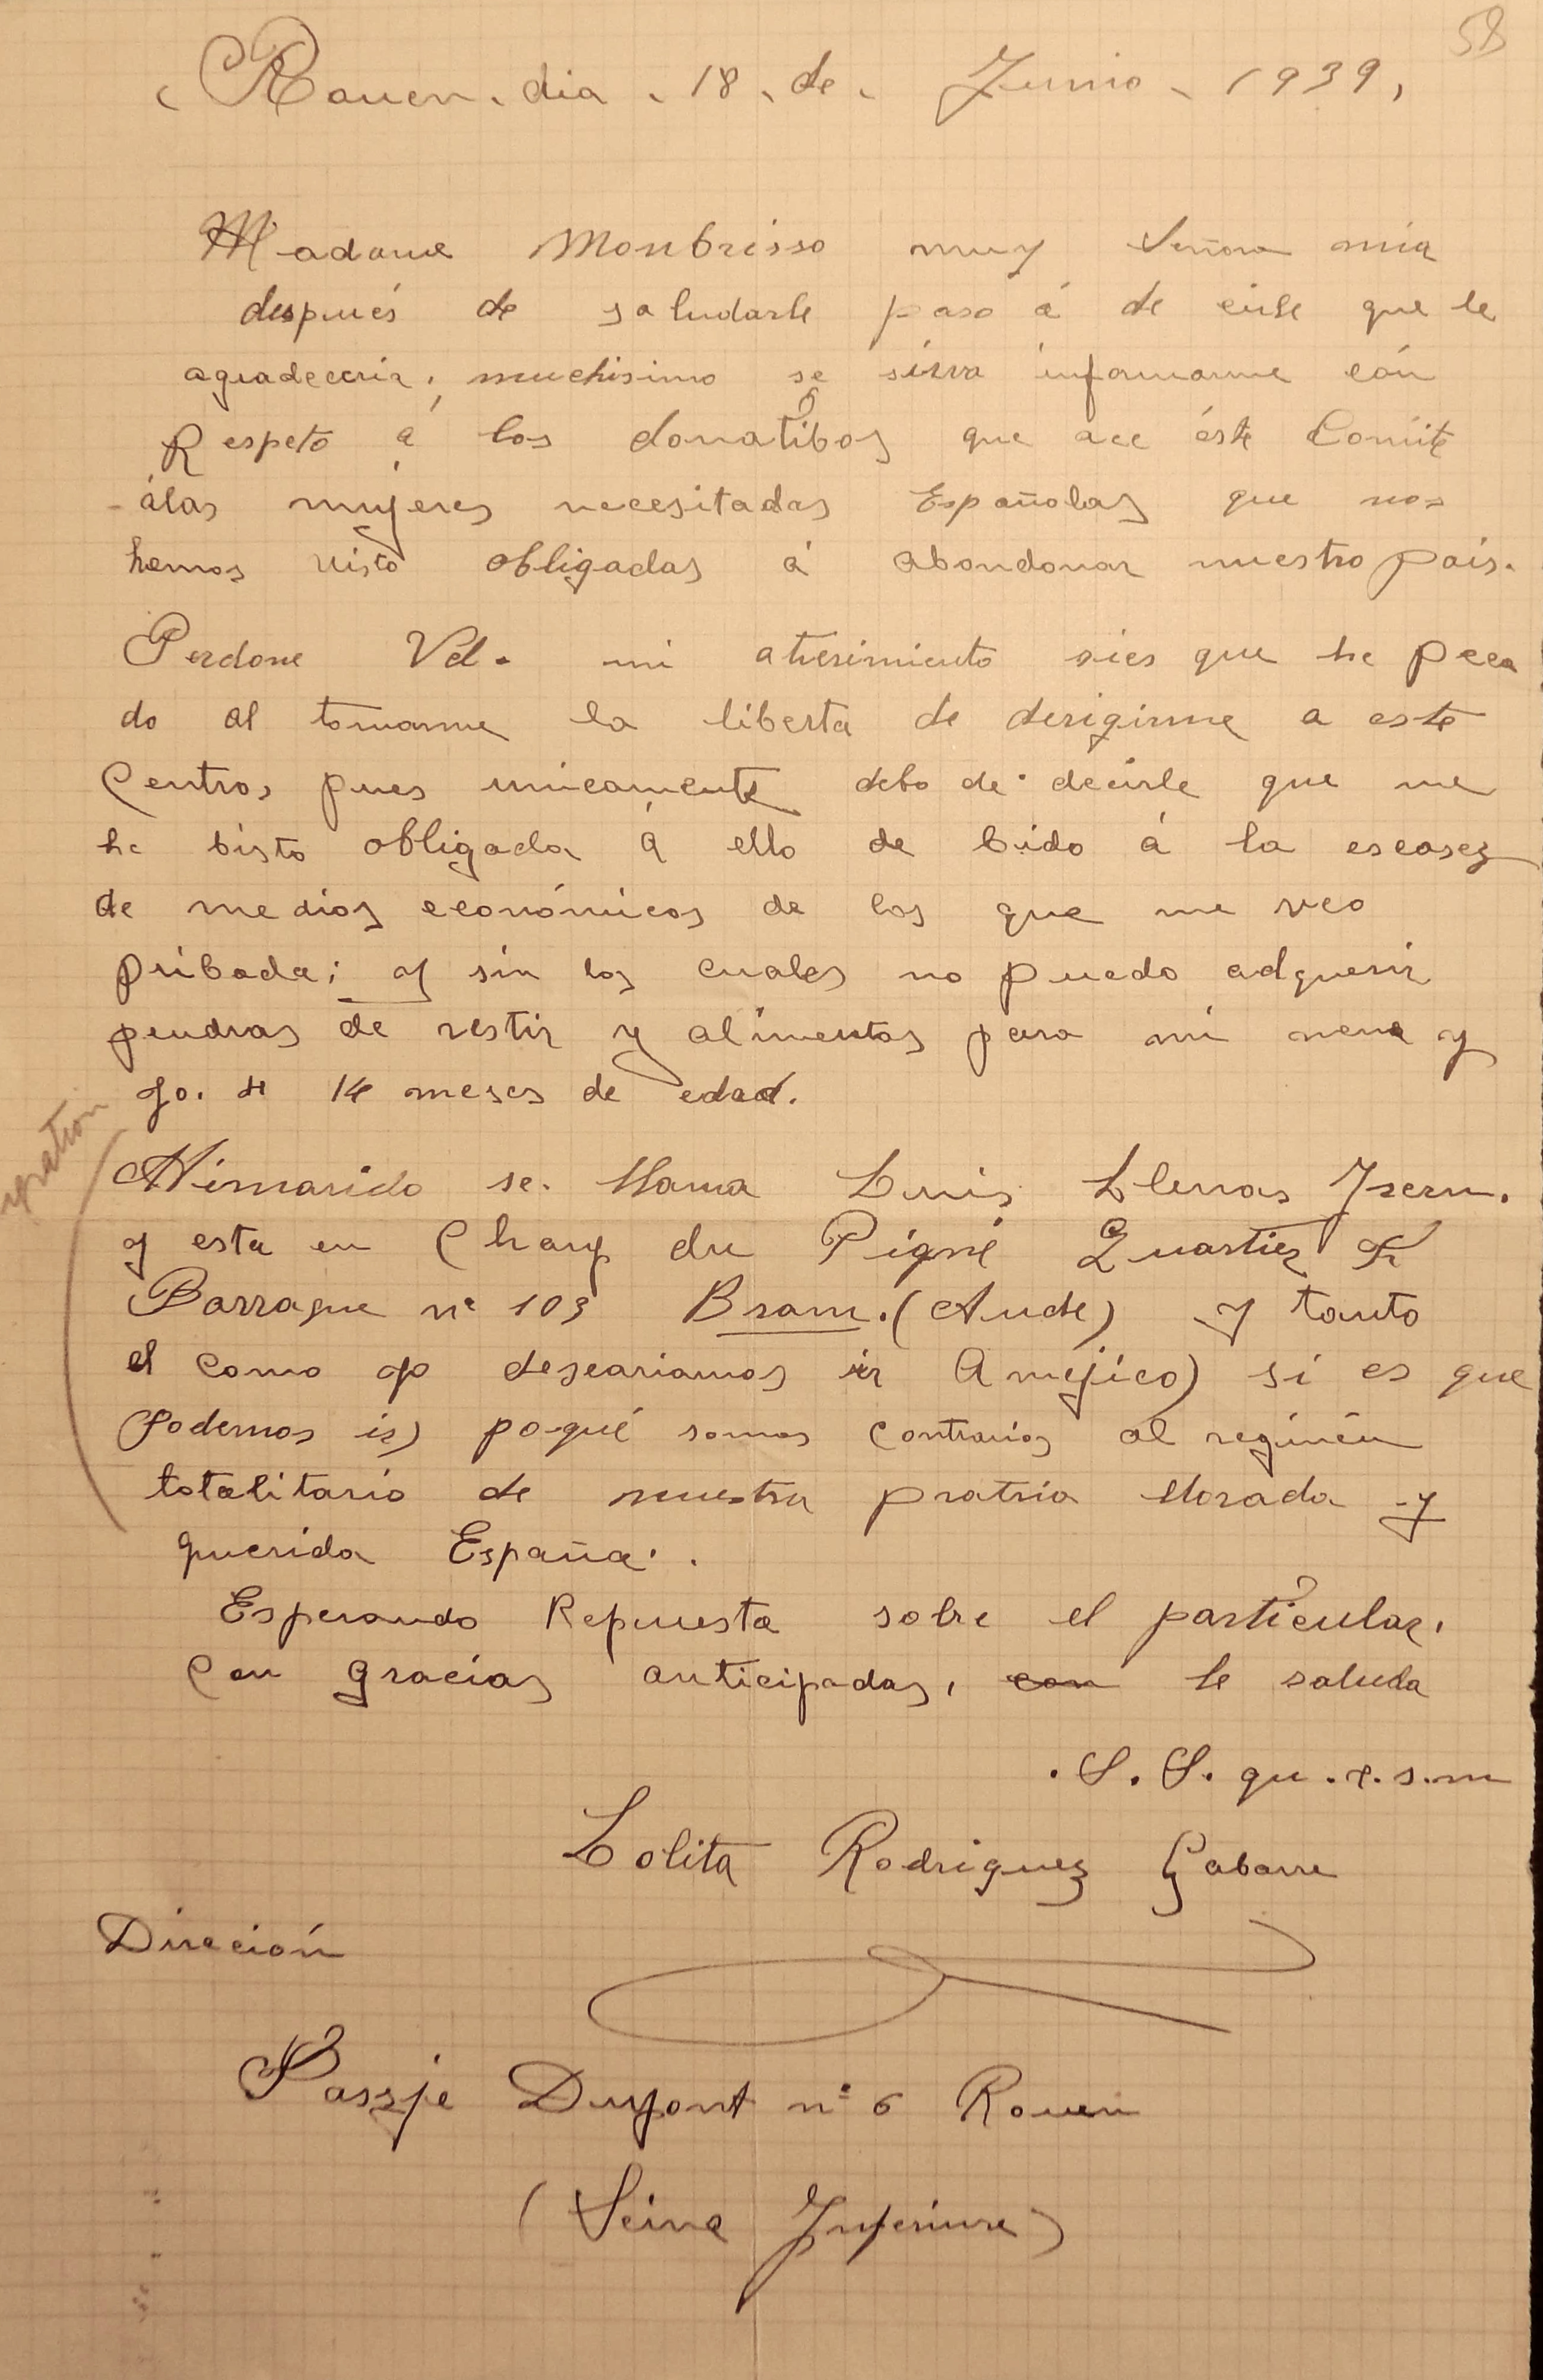 58
Rouen. dia. 18. de. Junio. 1939,
Madame Monbrisso muy Señora mia
después de saludarle paso á de cirle que le
agradeceria, muchisimo se sirva informarme cón
Respeto á los donatibos que ace éste Comite
álas mujeres necesitadas Españolas que nos
hemos visto obligadas á abandonar nuestro país.
Perdone Vd. mi atresimiento sies que he peca
do al tomarme la liberta de derigirme a este
Centro, pues unicamente debo de decirle que me
he bisto obligada á ello de bido á la escasez
de medios económicos de los que me veo
pribada; y sin los cuales no puedo adquerir
pendras de vestir y alimentos para mi nena y
yo. de 14 meses de edad.
Mimarido se. llama Luis Llenas Isern.
y esta en Chanp du Pigné Quartier F
Barraque nº 109 Bram. (Aude) y tanto
el como yo deseariamos ir Amejico) si es que
Podemos ir) poqué somos Contrarios al regimén
totalitario de nuestra pratria llorada y
querida España.
Esperando Repuesta sobre el particular,
Con gracias anticipadas, con le saluda
S. S. qu.e.s.m
Lolita Rodriguez Gabarre
Direción
Passje Dupont nº 6 Rouen
(Seine Inferiure)